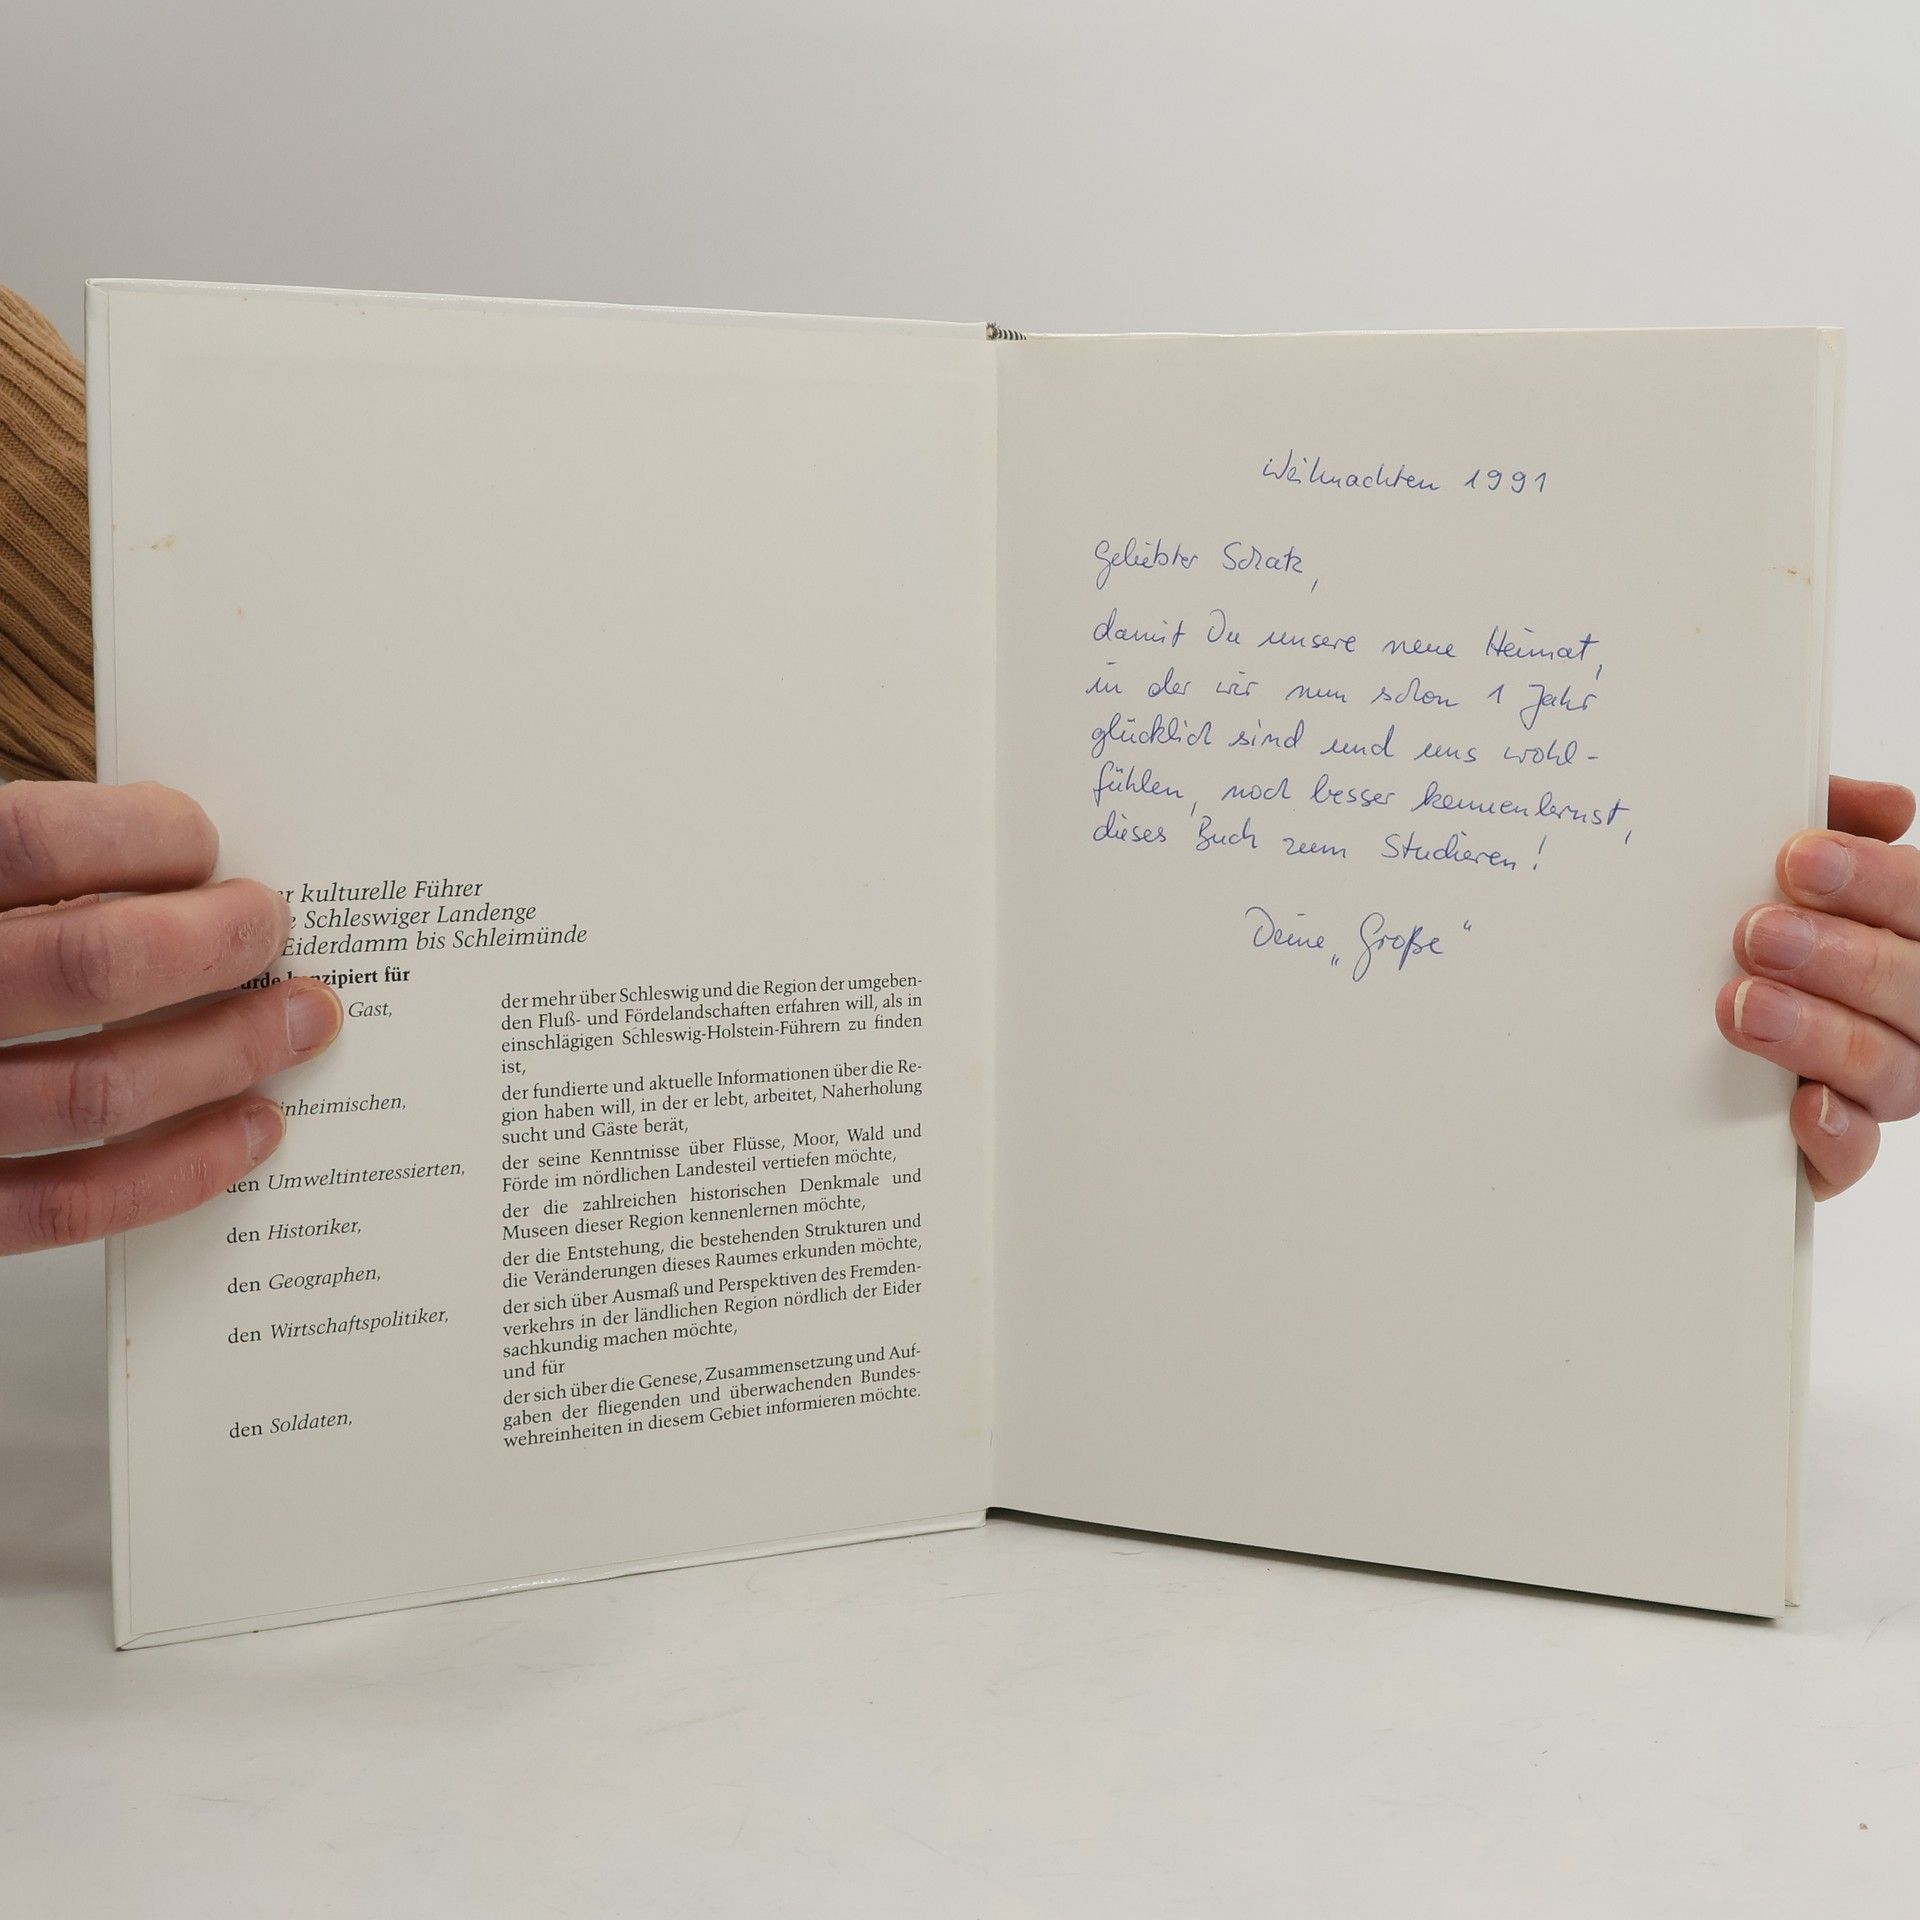 kulturelle Führer
Schleswiger Landenge
Eiderdamm bis Schleimünde
konzipiert für
Gast,
der mehr über Schleswig und die Region der umgeben-
den Fluß- und Fördelandschaften erfahren will, als in
einschlägigen Schleswig-Holstein-Führern zu finden
ist,
inheimischen,
der fundierte und aktuelle Informationen über die Re-
gion haben will, in der er lebt, arbeitet, Naherholung
sucht und Gäste berät,
den Umweltinteressierten,
der seine Kenntnisse über Flüsse, Moor, Wald und
Förde im nördlichen Landesteil vertiefen möchte,
den Historiker,
der die zahlreichen historischen Denkmale und
Museen dieser Region kennenlernen möchte,
den Geographen,
der die Entstehung, die bestehenden Strukturen und
die Veränderungen dieses Raumes erkunden möchte,
den Wirtschaftspolitiker,
der sich über Ausmaß und Perspektiven des Fremden-
verkehrs in der ländlichen Region nördlich der Eider
sachkundig machen möchte,
und für
den Soldaten,
der sich über die Genese, Zusammensetzung und Auf-
gaben der fliegenden und überwachenden Bundes-
wehreinheiten in diesem Gebiet informieren möchte.
Weihnachten 1991
Geliebter Schatz,
damit Du unsere neue Heimat,
in der wir nun schon 1 Jahr
glücklich sind und uns wohl-
fühlen, noch besser kennenlernst,
dieses Buch zum Studieren!
Deine „Große“